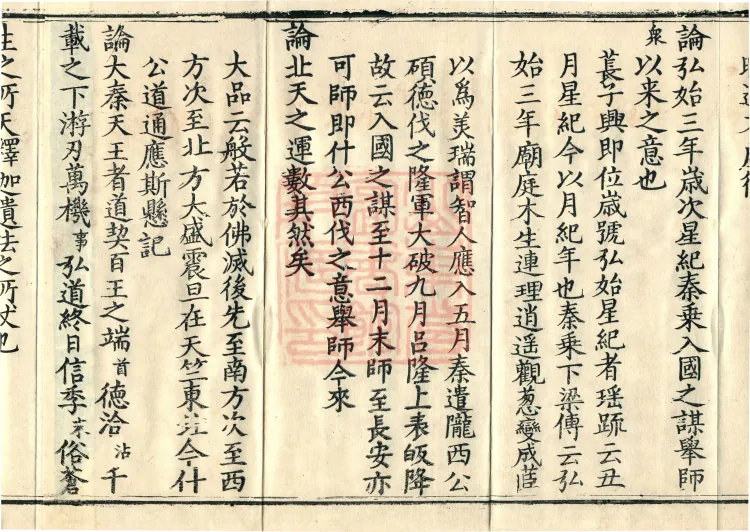 論弘始三年歳次星紀秦乗入國之謀舉師
衆以来之意也
萇子興即位歳號弘始星紀者瑶䟽云丑
月星紀今以月紀年也秦乗下梁傳云弘
始三年廟庭木生連理逍遥觀葱變成茝
以為美瑞謂智人應入五月秦遣隴西公
碩徳伐之隆軍大破九月吕隆上表皈降
故云入國之謀至十二月末師至長安亦
可師即什公西伐之意舉師今來
論北天之運數其然矣
大品云般若於佛滅後先至南方次至西
方次至北方大盛震旦在天竺東北今什
公道通應斯懸記
論大秦天王者道契百王之端首德洽沾千
載之下游刃萬機事弘道終日信季末俗蒼
生之所天釋迦遺法之所仗也